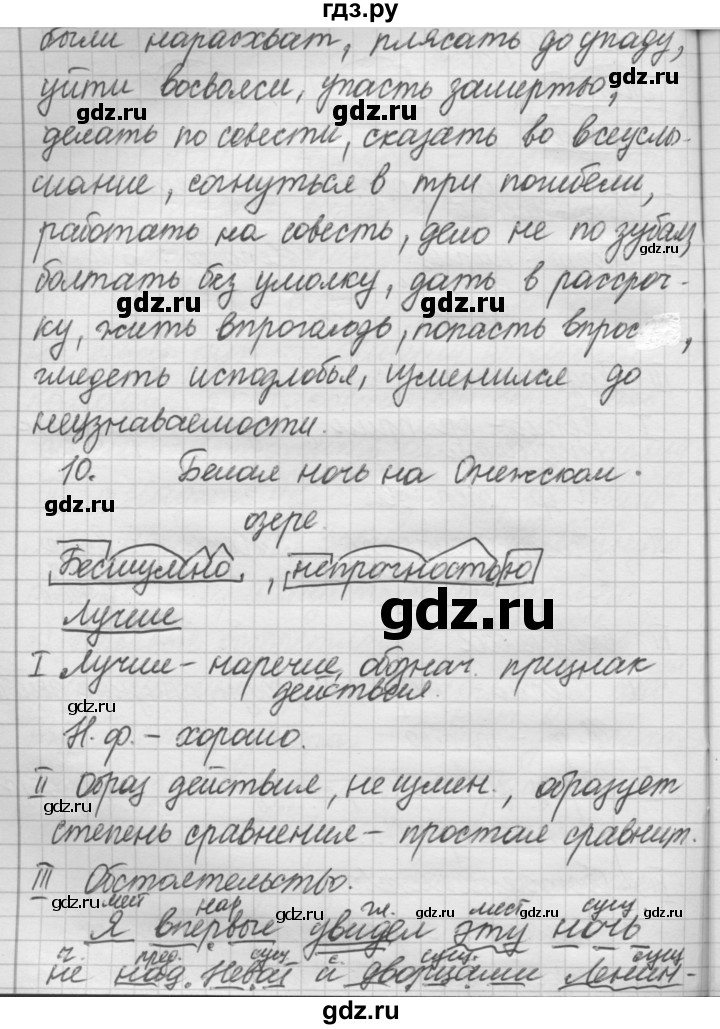 гдз.ру
были нарасхват, плясать до упаду,
уйти восвояси, упасть замертво,
делать по совести, сказать во всеуслы-
шание, согнуться в три погибели,
работать на совесть, дело не по зубам,
болтать без умолку, дать в рассроч-
ку, жить впроголодь, попасть впрос
глядеть исподлобья, изменился до
неузнаваемости.
10. Белая ночь на Онежском
озере.
Бесшумно, непрочностью
Лучше
I Лучше - наречие, обознач. признак
действия.
Н. ф. - хорошо.
II Образ действия, не измен., образует
степень сравнения - простая сравнит.
III Обстоятельство.
мест нар гл. мест сущ
Я впервые увидел эту ночь
ч. пред. сущ с сущ. сущ
не над Невой и дворцами Ленин-
gdz.ru
gdz.ru
gdz.ru
gdz.ru
gdz.ru
gdz.ru
gdz.ru
gdz.ru
gdz.ru
gdz.ru
gdz.ru
gdz.ru
gdz.ru
gdz.ru